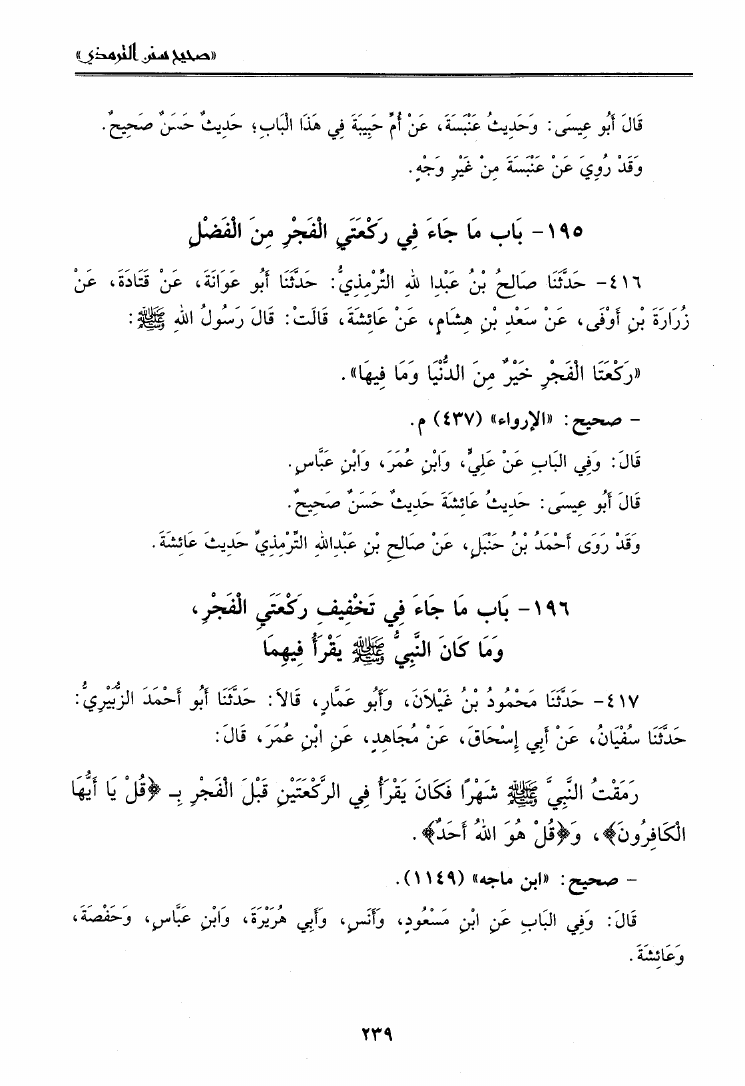 «صحيح سنن الترمذي»
قَالَ أَبُو عِيسَى: وَحَدِيثُ عَنْبَسَةَ، عَنْ أُمِّ حَبِيبَةَ فِي هَذَا الْبَابِ؛ حَدِيثٌ حَسَنٌ صَحِيحٌ.
وَقَدْ رُوِيَ عَنْ عَنْبَسَةَ مِنْ غَيْرِ وَجْهٍ.
١٩٥- بَاب مَا جَاءَ فِي رَكْعَتَيِ الْفَجْرِ مِنَ الْفَضْلِ
٤١٦- حَدَّثَنَا صَالِحُ بْنُ عَبْدِا للهِ التِّرْمِذِيُّ: حَدَّثَنَا أَبُو عَوَانَةَ، عَنْ قَتَادَةَ، عَنْ
زُرَارَةَ بْنِ أَوْفَى، عَنْ سَعْدِ بْنِ هِشَامٍ، عَنْ عَائِشَةَ، قَالَتْ: قَالَ رَسُولُ اللهِ ﷺ:
«رَكْعَتَا الْفَجْرِ خَيْرٌ مِنَ الدُّنْيَا وَمَا فِيهَا».
- صحيح: «الإرواء» (٤٣٧) م.
قَالَ: وَفِي الْبَابِ عَنْ عَلِيٍّ، وَابْنِ عُمَرَ، وَابْنِ عَبَّاسٍ.
قَالَ أَبُو عِيسَى: حَدِيثُ عَائِشَةَ حَدِيثٌ حَسَنٌ صَحِيحٌ.
وَقَدْ رَوَى أَحْمَدُ بْنُ حَنْبَلٍ، عَنْ صَالِحِ بْنِ عَبْدِاللهِ التِّرْمِذِيِّ حَدِيثَ عَائِشَةَ.
١٩٦- بَاب مَا جَاءَ فِي تَخْفِيفِ رَكْعَتَيِ الْفَجْرِ،
وَمَا كَانَ النَّبِيُّ ﷺ يَقْرَأُ فِيهِمَا
٤١٧- حَدَّثَنَا مَحْمُودُ بْنُ غَيْلَانَ، وَأَبُو عَمَّارٍ، قَالَا: حَدَّثَنَا أَبُو أَحْمَدَ الزُّبَيْرِيُّ:
حَدَّثَنَا سُفْيَانُ، عَنْ أَبِي إِسْحَاقَ، عَنْ مُجَاهِدٍ، عَنِ ابْنِ عُمَرَ، قَالَ:
رَمَقْتُ النَّبِيَّ ﷺ شَهْرًا فَكَانَ يَقْرَأُ فِي الرَّكْعَتَيْنِ قَبْلَ الْفَجْرِ بِـ ﴿قُلْ يَا أَيُّهَا
الْكَافِرُونَ﴾، وَ﴿قُلْ هُوَ اللهُ أَحَدٌ﴾.
- صحيح: «ابن ماجه» (١١٤٩).
قَالَ: وَفِي الْبَابِ عَنِ ابْنِ مَسْعُودٍ، وَأَنَسٍ، وَأَبِي هُرَيْرَةَ، وَابْنِ عَبَّاسٍ، وَحَفْصَةَ،
وَعَائِشَةَ.
٢٣٩